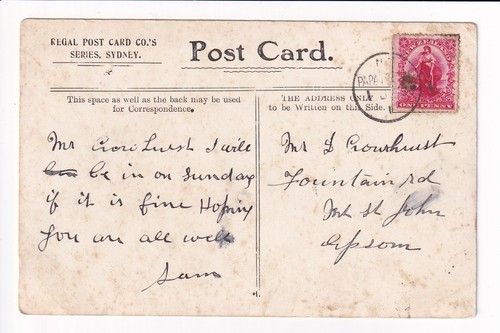 REGAL POST CARD CO.'S
SERIES, SYDNEY.
Post Card.
NEW ZEALAND
ONE PENNY
PAPA
This space as well as the back may be used
for Correspondence.
THE ADDRESS ONLY
to be Written on this Side.
Mr Crowhurst I will
be in on Sunday
if it is fine Hoping
you are all well
Sam
Mr L Crowhurst
Fountain rd
Mt St John
Epsom